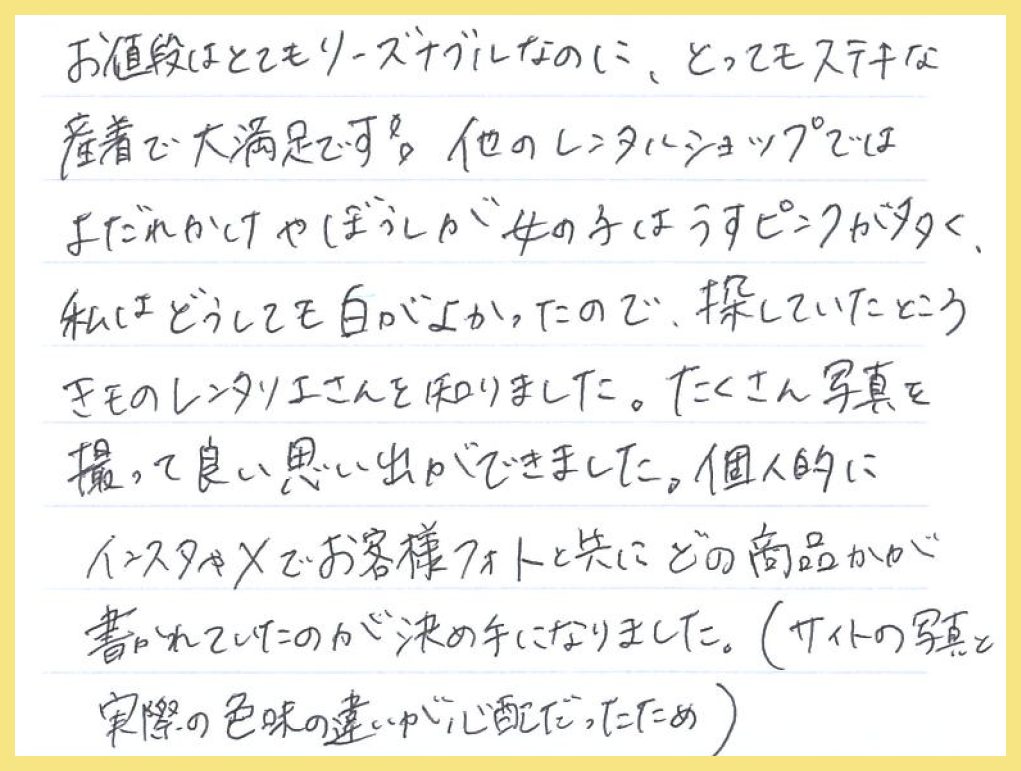 お値段はとてもリーズナブルなのに、とってもステキな
産着で大満足です!! 他のレンタルショップでは
よだれかけやぼうしが女の子はうすピンクが多く、
私はどうしても白がよかったので、探していたところ
きものレンタリエさんを知りました。たくさん写真を
撮って良い思い出ができました。個人的に
インスタやXでお客様フォトと共にどの商品かが
書かれていたのが決め手になりました。(サイトの写真と
実際の色味の違いが心配だったため)